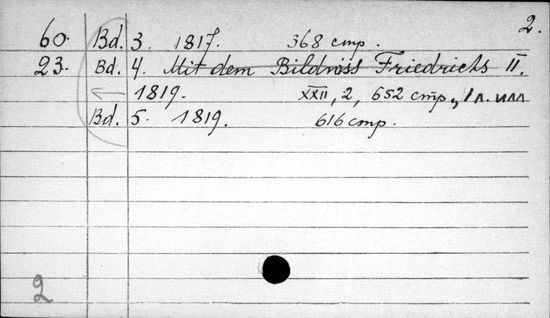 2.
60. Bd. 3. 1817. 368 стр.
23. Bd. 4. Mit dem Bildniss Friedrichs II.
1819. XXII, 2, 652 стр., 1 л. илл
Bd. 5. 1819. 616 стр.
2